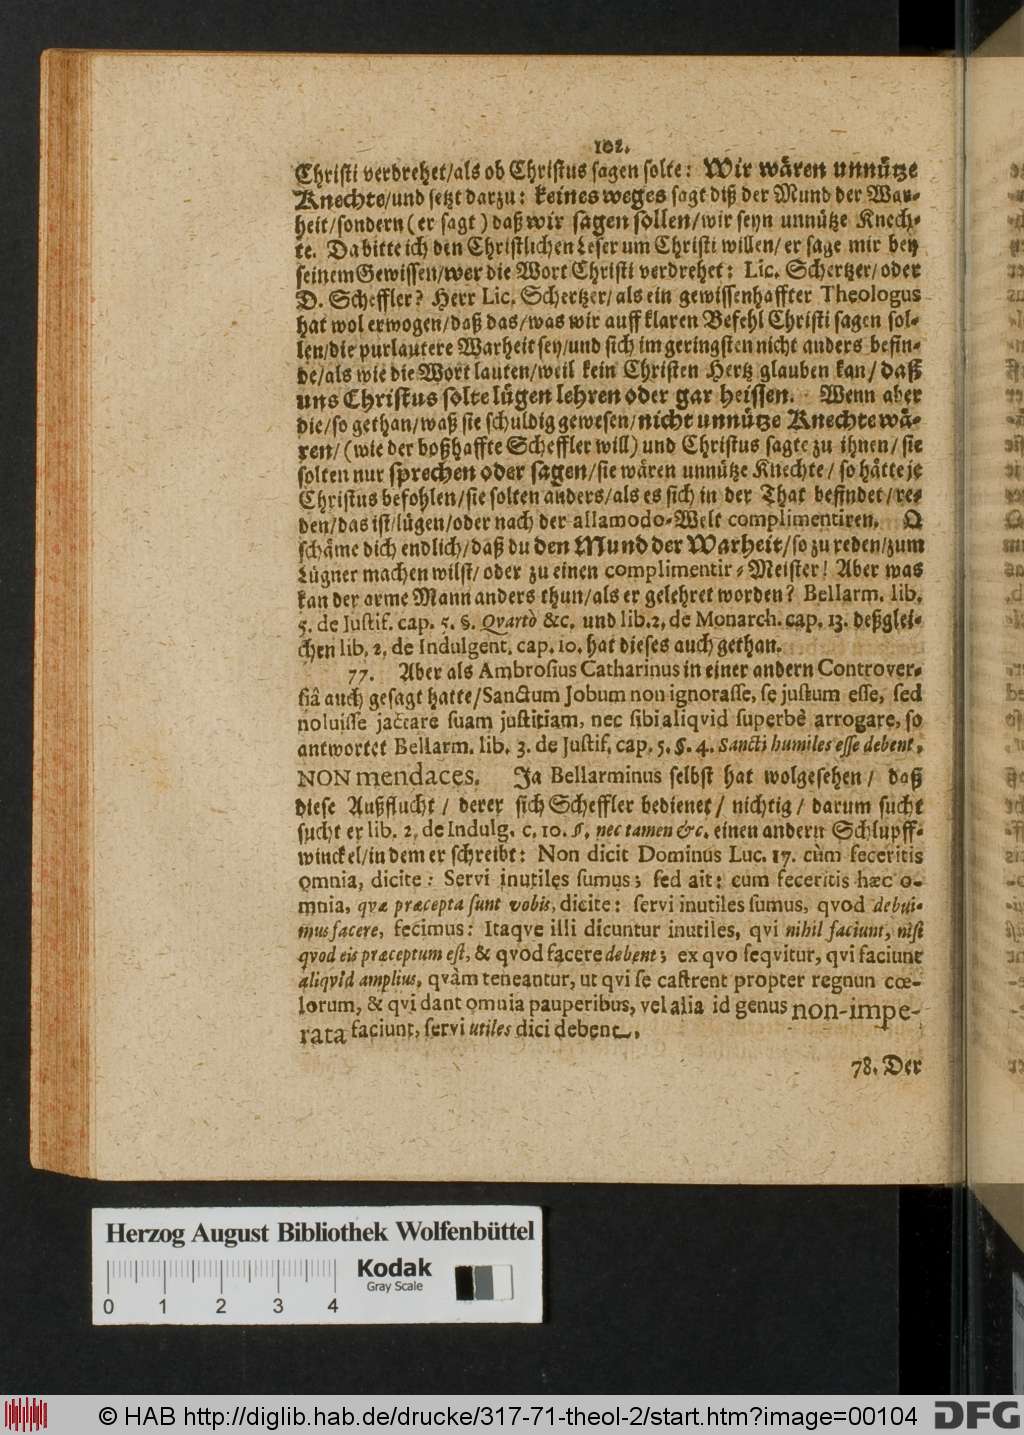 102.
Chriſti verdrehet/als ob Chriſtus ſagen ſolte: Wir wären unnütze
Knechte/und ſetzt darzu: keines weges ſagt diß der Mund der War-
heit/ſondern (er ſagt) daß wir ſagen ſollen/wir ſeyn unnütze Knech-
te. Da bitte ich den Chriſtlichen Leſer um Chriſti willen/er ſage mir bey
ſeinem Gewiſſen/wer die Wort Chriſti verdrehet: Lic. Schertzer/oder
D. Scheffler? Herr Lic. Schertzer/als ein gewiſſenhaffter Theologus
hat wol erwogen/daß das/was wir auff klaren Befehl Chriſti ſagen ſol-
len/die purlautere Warheit ſey/und ſich im geringſten nicht anders befin-
de/als wie die Wort lauten/weil kein Chriſten Hertz glauben kan/daß
uns Chriſtus ſolte lügen lehren oder gar heiſſen. Wenn aber
die/ſo gethan/waß ſie ſchuldig geweſen/nicht unnütze Knechte wä-
ren/(wie der boßhaffte Scheffler will) und Chriſtus ſagte zu ihnen/ſie
ſolten nur ſprechen oder ſagen/ſie wären unnütze Knechte/ſo hätte je
Chriſtus befohlen/ſie ſolten anders/als es ſich in der That befindet/re-
den/das iſt/lügen/oder nach der allamodo-Welt complimentiren. O
ſchäme dich endlich/daß du den Mund der Warheit/ſo zu reden/zum
Lügner machen wilſt/oder zu einen complimentir-Meiſter! Aber was
kan der arme Mann anders thun/als er gelehret worden? Bellarm. lib.
5. de Juſtif. cap. 5. §. Qvartò &c. und lib. 2. de Monarch. cap. 13. deßglei-
chen lib. 2. de Indulgent. cap. 10. hat dieſes auch gethan.
77. Aber als Ambroſius Catharinus in einer andern Controver-
ſiâ auch geſagt hatte/Sanctum Jobum non ignoraſſe, ſe juſtum eſſe, ſed
noluiſſe jactare ſuam juſtitiam, nec ſibi aliqvid ſuperbè arrogare, ſo
antwortet Bellarm. lib. 3. de Juſtif. cap. 5. §. 4. Sancti humiles eſſe debent,
NON mendaces. Ja Bellarminus ſelbſt hat wolgeſehen/daß
dieſe Außflucht/derer ſich Scheffler bedienet/nichtig/darum ſucht
ſucht er lib. 2. de Indulg. c. 10. §. nec tamen &c. einen andern Schlupff-
winckel/in dem er ſchreibt: Non dicit Dominus Luc. 17. cùm feceritis
omnia, dicite: Servi inutiles ſumus; ſed ait: cum feceritis hæc o-
mnia, qvæ præcepta ſunt vobis, dicite: ſervi inutiles ſumus, qvod debui-
mus facere, fecimus: Itaqve illi dicuntur inutiles, qvi nihil faciunt, niſi
qvod eis præceptum eſt, & qvod facere debent; ex qvo ſeqvitur, qvi faciunt
aliqvid amplius, qvàm teneantur, ut qvi ſe caſtrent propter regnun cœ-
lorum, & qvi dant omnia pauperibus, vel alia id genus non-impe-
rata faciunt, ſervi utiles dici debent.
78. Der
Herzog August Bibliothek Wolfenbüttel
Kodak
Gray Scale
0 1 2 3 4
© HAB http://diglib.hab.de/drucke/317-71-theol-2/start.htm?image=00104 DFG